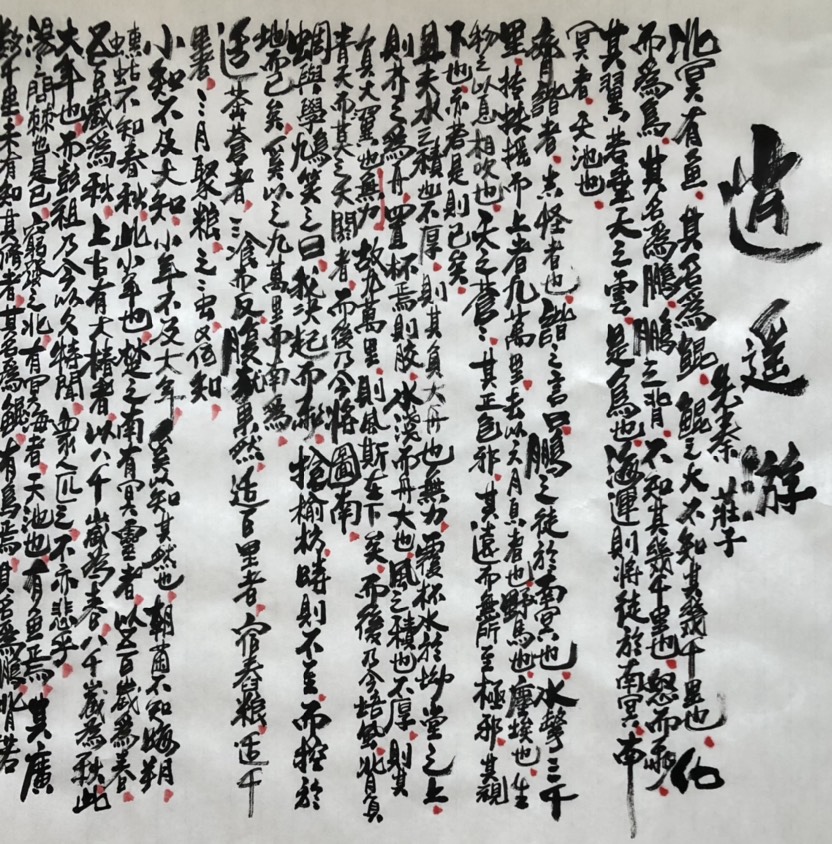 逍遥游
先秦 莊子
北冥有鱼其名為鯤鯤之大不知其幾千里也化
而為鳥其名為鵬鵬之背不知其幾千里也怒而飛
其翼若垂天之雲是鳥也海運則將徙於南冥南
冥者天池也
齊諧者志怪者也諧之言曰鵬之徙於南冥也水擊三千
里摶扶搖而上者九萬里去以六月息者也野馬也塵埃也生
物之以息相吹也天之蒼々其正色邪其遠而無所至極邪其視
下也亦若是則已矣
且夫水之積也不厚則其負大舟也無力覆杯水於坳堂之上
則芥之為舟置杯焉則膠水淺而舟大也風之積也不厚則其
負大翼也無力故九萬里則風斯在下矣而後乃今培風背負
青天而莫之夭閼者而後乃今將圖南
蜩與學鳩笑之曰我決起而飛搶榆枋時則不至而控於
地而已矣奚以之九萬里而南為
适莽蒼者三飡而反腹猶果然适百里者宿舂糧适千
里者三月聚糧之二虫又何知
小知不及大知小年不及大年奚以知其然也朝菌不知晦朔
蟪蛄不知春秋此小年也楚之南有冥靈者以五百歲為春
五百歲為秋上古有大椿者以八千歲為春八千歲為秋此
大年也而彭祖乃今以久特聞眾人匹之不亦悲乎
湯之問棘也是已窮髮之北有冥海者天池也有鱼焉其廣
數千里未有知其脩者其名為鯤有鳥焉其名為鵬背若